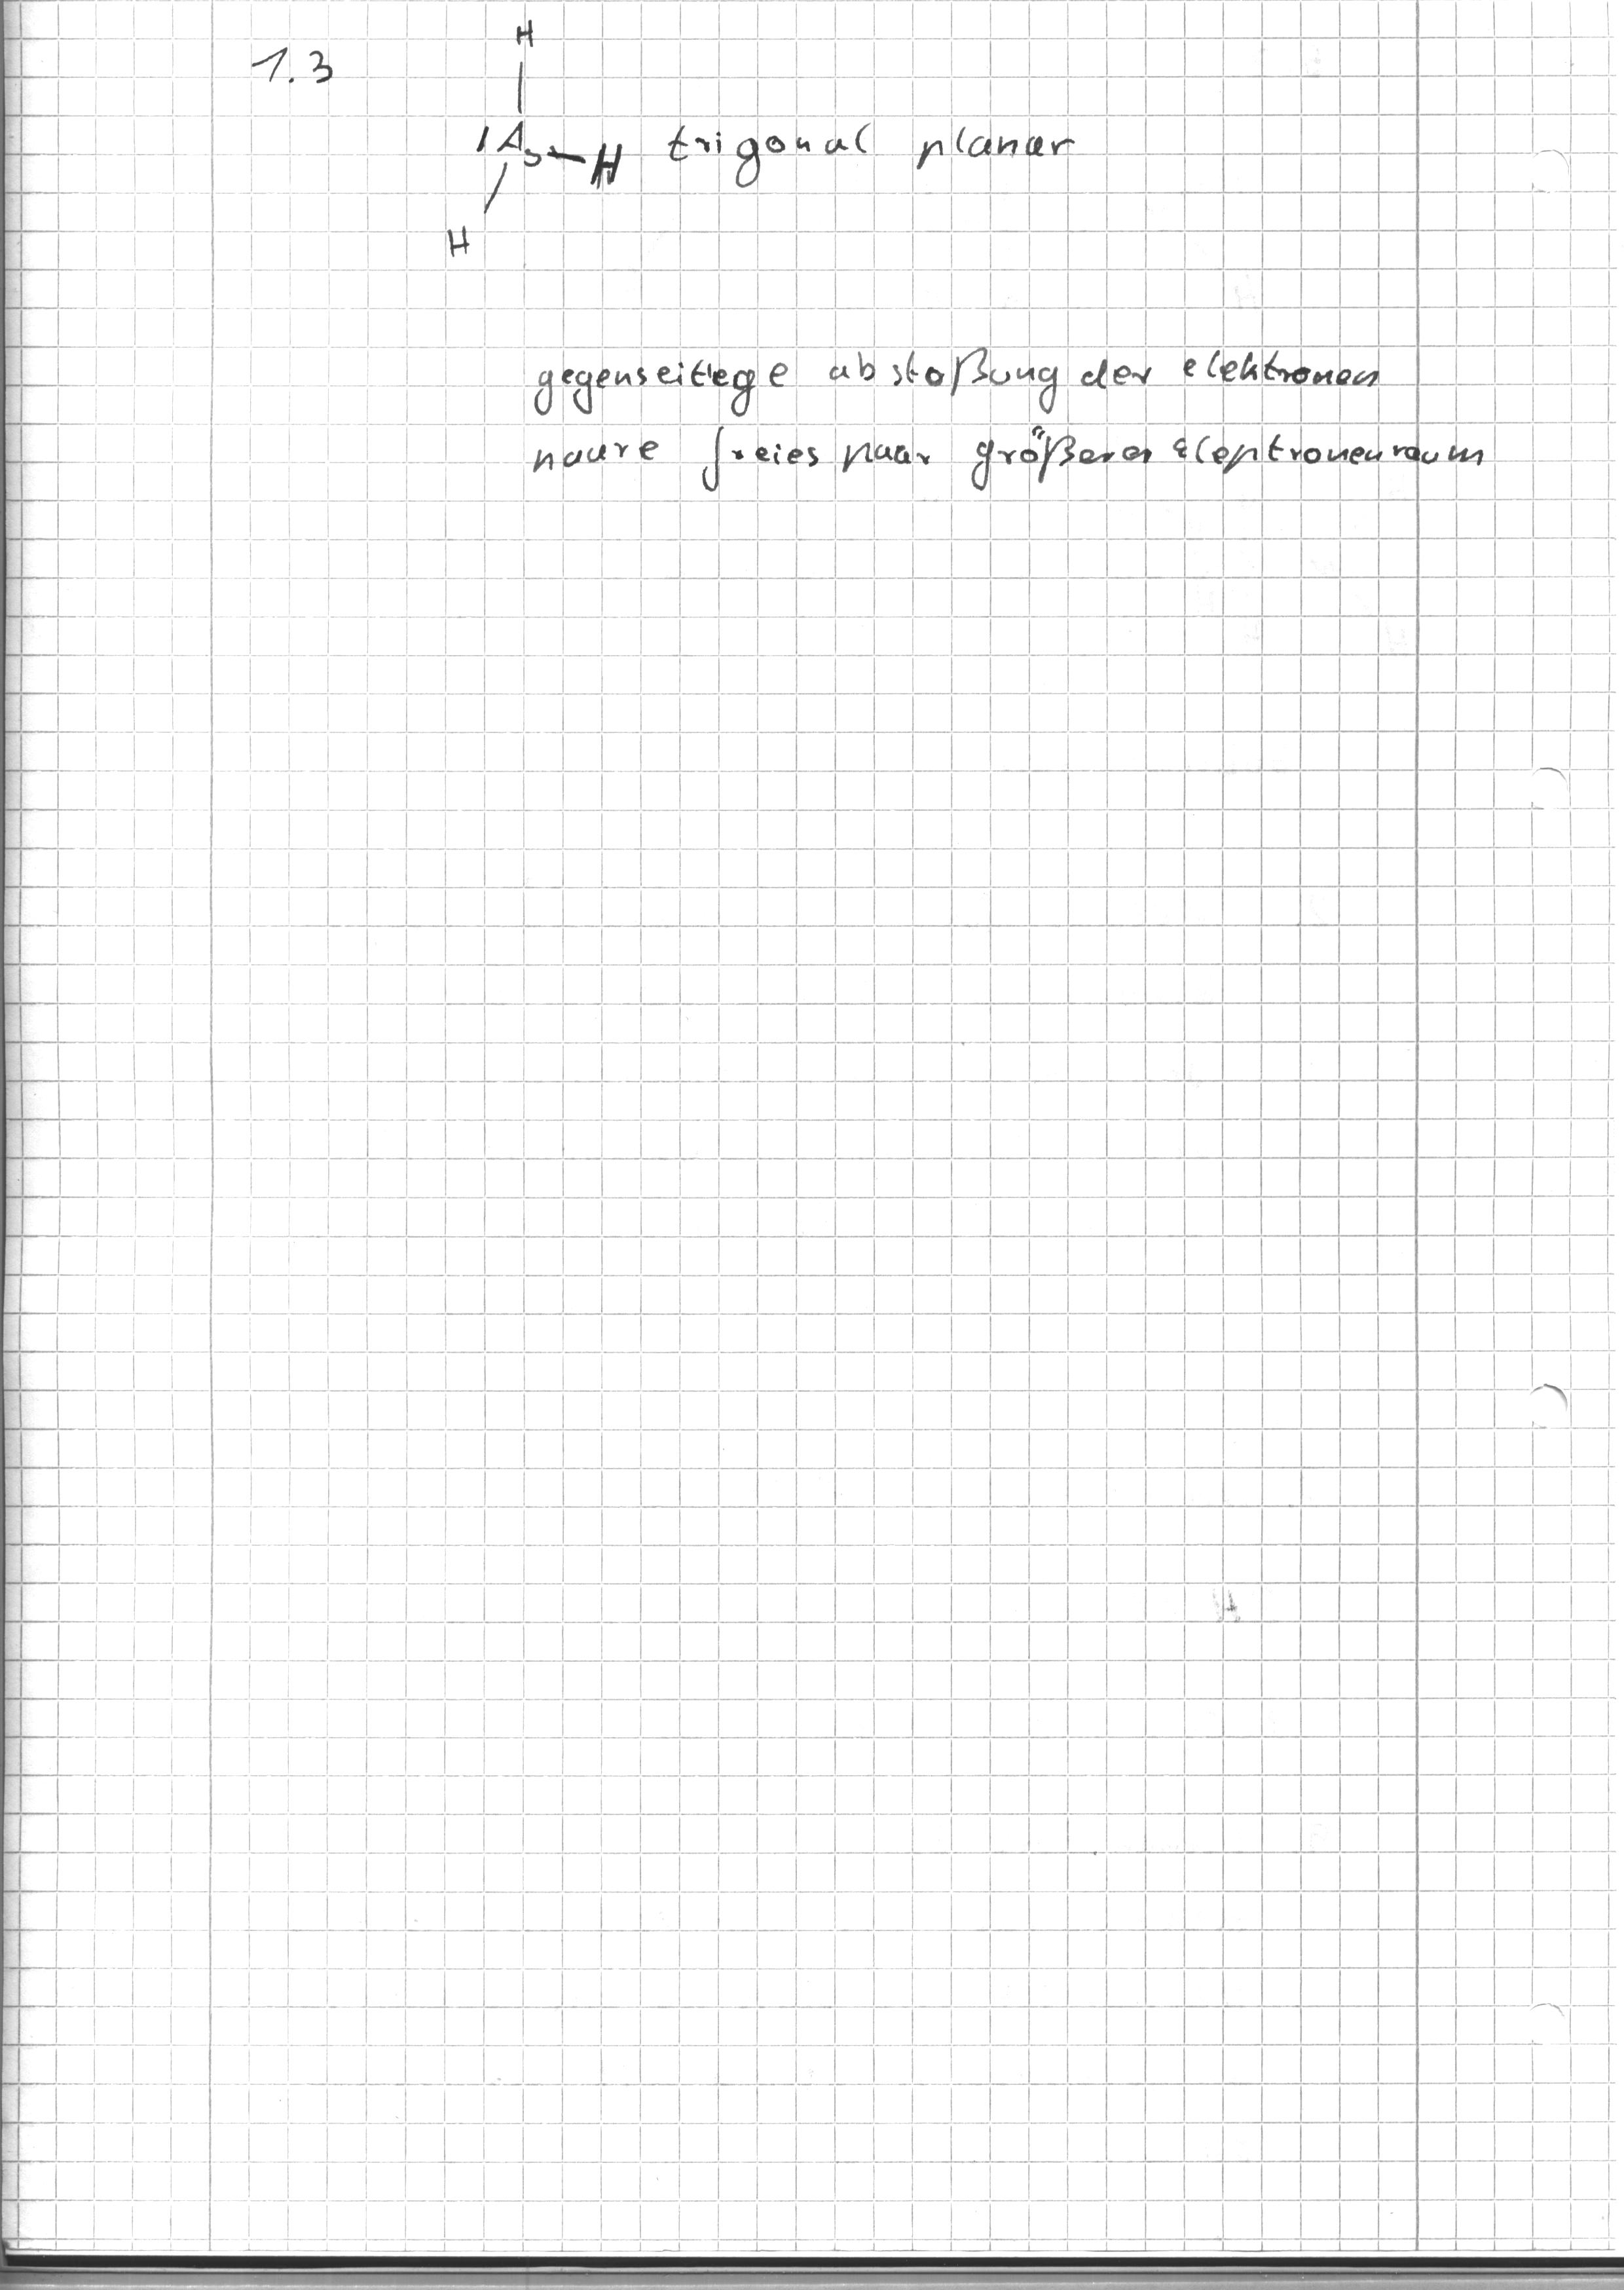 1.3
H
|As-H trigonal planar
H
gegenseitiege abstoßung der elektronen
paare freies paar größerer Eleptronenraum